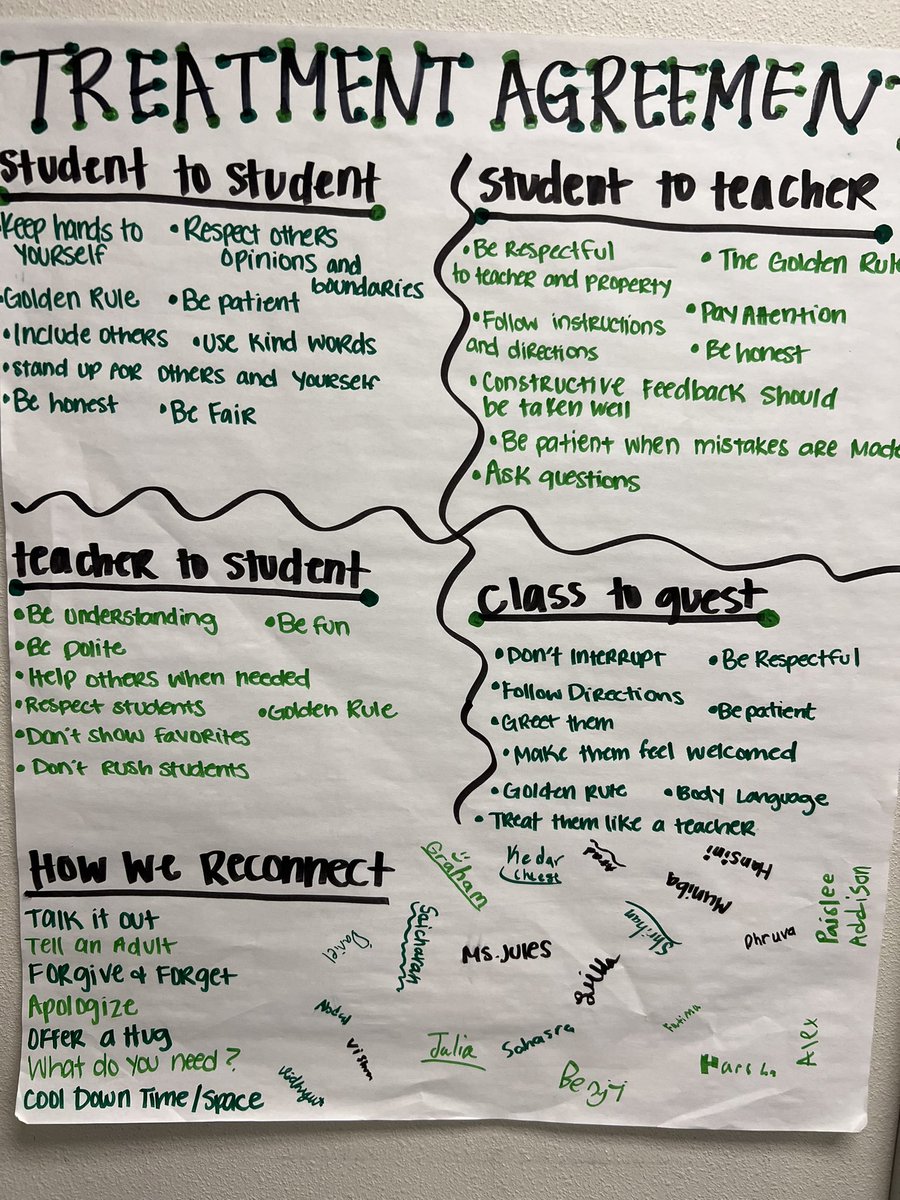 TREATMENT AGREEMENT
Student to Student
• Keep hands to
yourself
• Respect others
opinions and
boundaries
• Golden Rule
• Be patient
• Include others
• Use Kind words
• Stand up for others and yourself
• Be honest
• Be Fair
Student to teacher
• Be Respectful
to teacher and property
• The Golden Rule
• Follow instructions
and directions
• Pay Attention
• Be honest
• Constructive Feedback should
be taken well
• Be patient when mistakes are Made
• Ask questions
teacher to student
• Be understanding
• Be fun
• Be polite
• Help others when needed
• Respect students
• Golden Rule
• Don't show favorites
• Don't Rush students
Class to guest
• Don't Interrupt
• Be Respectful
• Follow Directions
• Greet them
• Be patient
• Make them feel welcomed
• Golden Rule
• Body Language
• Treat them like a teacher
How We Reconnect
Talk it out
Tell an Adult
Forgive & Forget
Apologize
Offer a Hug
What do you need?
Cool Down Time/Space
Graham
Kedar
Cheese
Hansini
Muniba
Paislee
Addison
Daniel
Saicharan
Ms. Jules
Shrihan
Dhruva
Julia
Sahasra
Fatima
Benji
Harsha
Alex